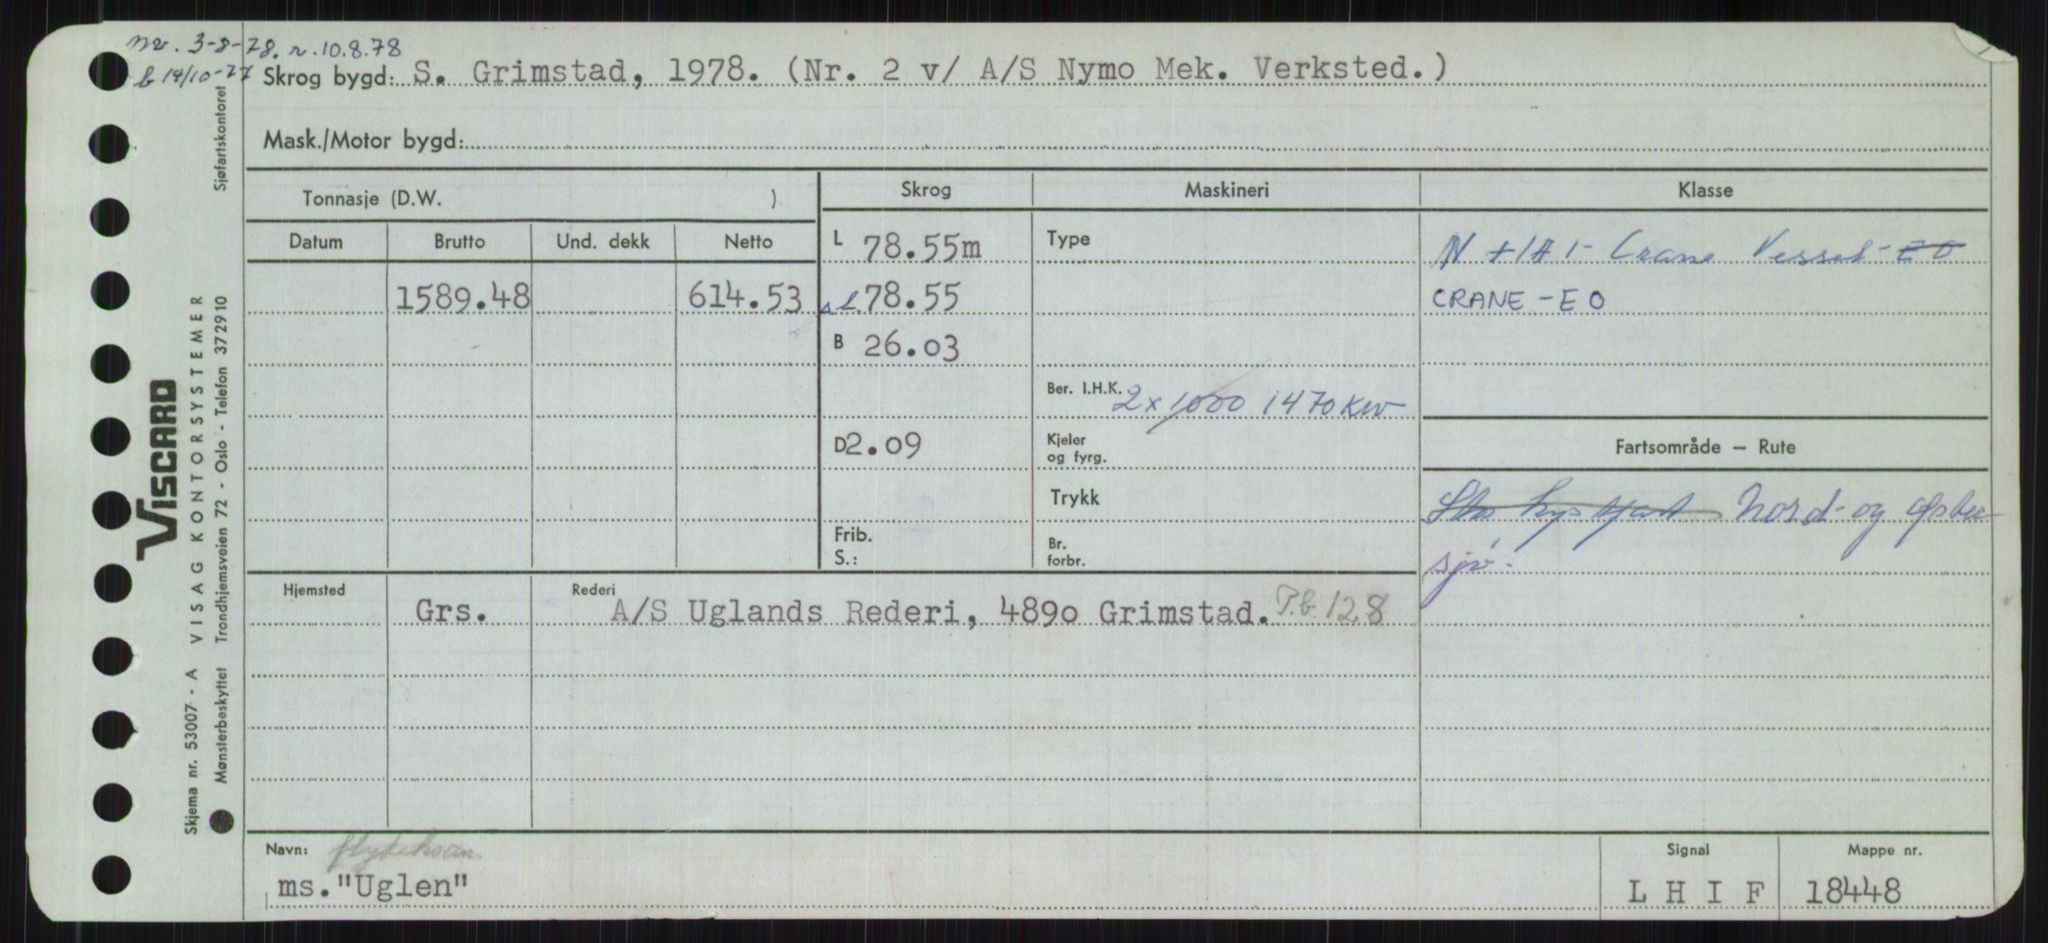 nv. 3-8-78. r. 10.8.78
b 14/10-77
Skrog bygd: S. Grimstad, 1978. (Nr. 2 v/ A/S Nymo Mek. Verksted.)
Mask./Motor bygd:
Tonnasje (D.W. )
Skrog Maskineri Klasse
Datum Brutto Und. dekk Netto
L 78.55m
Type
N +1A1- Crane Vessel - EO
1589.48 614.53
L 78.55
CRANE - EO
B 26.03
Ber. I.H.K. 2 x 1000 1470 KW
D 2.09
Kjeler
og fyrg.
Fartsområde — Rute
Trykk
Nord- og Østersjø.
Frib.
S.:
Br.
forbr.
Hjemsted Rederi
Grs. A/S Uglands Rederi, 4890 Grimstad. T.b. 128
Navn: flytekran
ms. "Uglen"
Signal
L H I F
Mappe nr.
18448
VISCARD
Skjema nr. 53007 - A VISAG KONTORSYSTEMER
Mønsterbeskyttet Trondhjemsveien 72 - Oslo - Telefon 372910
Sjøfartskontoret